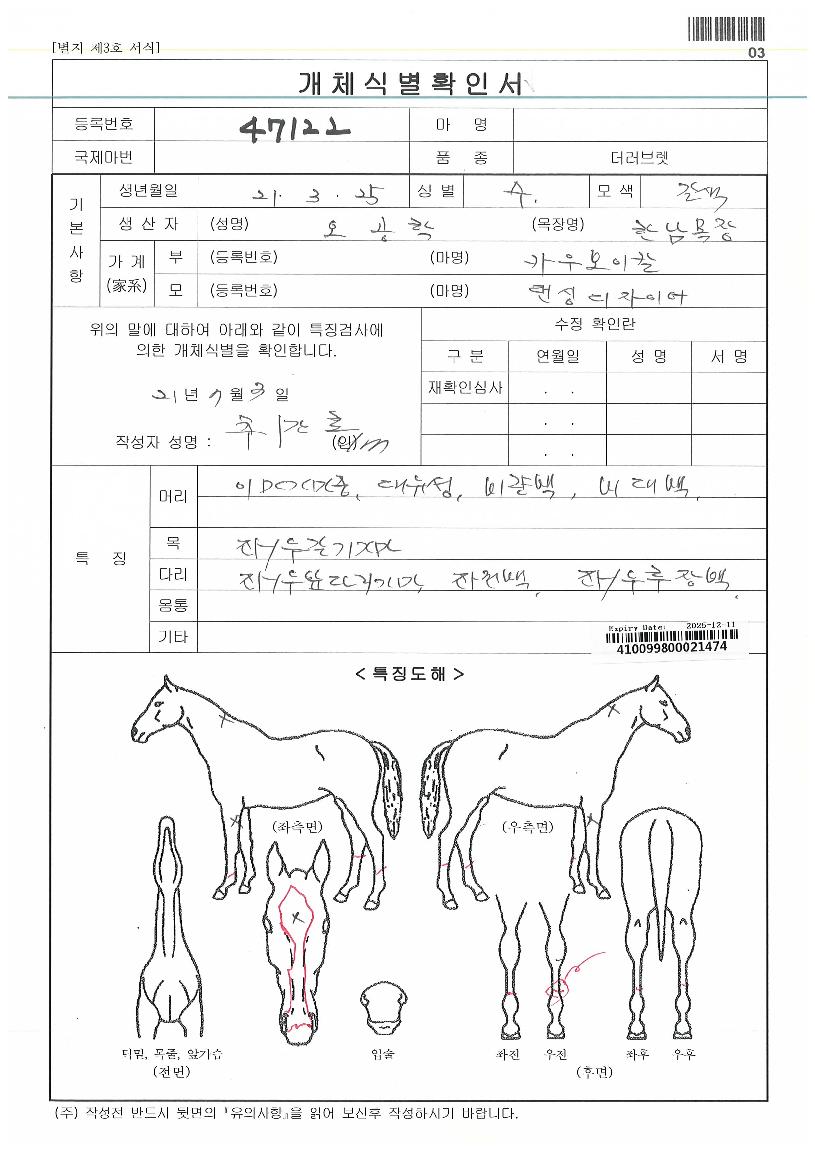 [별지 제3호 서식]
03
개체식별확인서
등록번호 47122 마 명
국제마번 품 종 더러브렛
기본사항
생년월일 21. 3. 25 성 별 수. 모 색 갈색
생 산 자 (성명) 오 공 학 (목장명) 한남목장
가 계 (家系) 부 (등록번호) (마명) 카우보이칼
모 (등록번호) (마명) 댄싱디자이어
위의 말에 대하여 아래와 같이 특징검사에
의한 개체식별을 확인합니다.
21년 7월 3일
작성자 성명 : (인)
수정 확인란
구 분 연월일 성 명 서 명
재확인심사 . .
. .
. .
특 징
머리 대유성, 비량백, 비대백.
목 좌/우갈기자마
다리 좌/우앞다리기마, 좌천백, 좌/우후장백.
몽통
기타
Expiry Date: 2025-12-11
410099800021474
< 특징도해 >
(좌측면) (우측면)
턱밑, 목줄, 앞가슴 입술 좌전 우전 좌후 우후
(전면) (후면)
(주) 작성전 반드시 뒷면의 『유의사항』을 읽어 보신후 작성하시기 바랍니다.